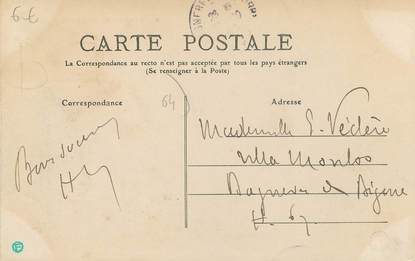 6-€
CARTE POSTALE
La Correspondance au recto n'est pas acceptée par tous les pays étrangers
(Se renseigner à la Poste)
Correspondance
64
Adresse
Mademoiselle
Villa
Bagneres de Bigorre
H.